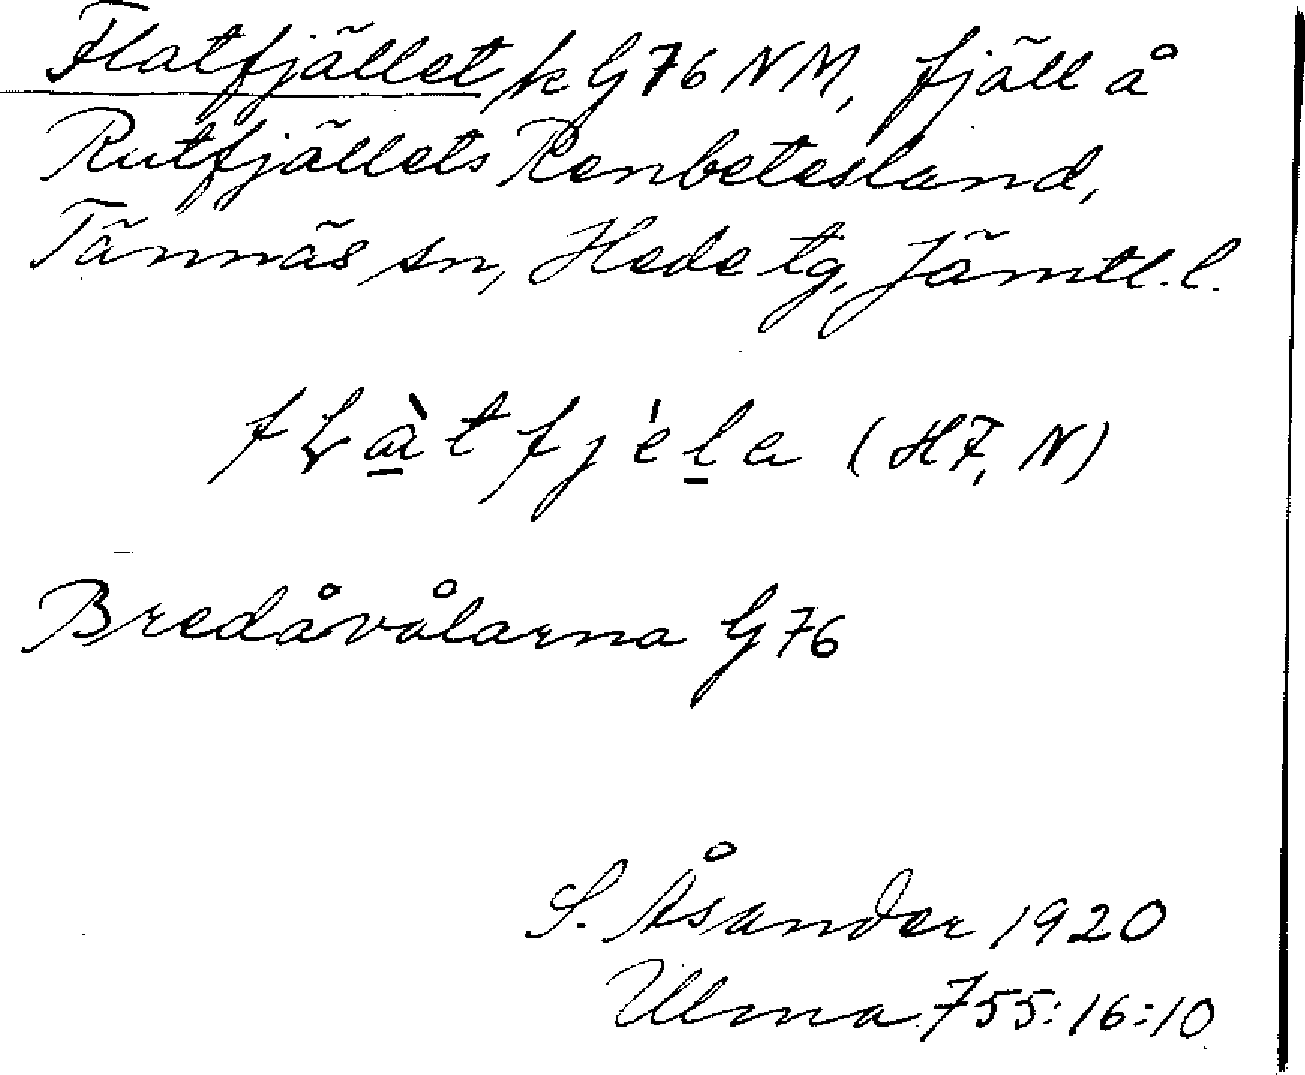 Flatfjället, k G76 NM, fjäll å
Rutfjällets Renbetesland,
Tännäs sn, Hede tg, Jämtl. l.
fLàtfjéla (HF, N)
Bredåvålarna G76
S. Åsander 1920
Ulma 755:16:10